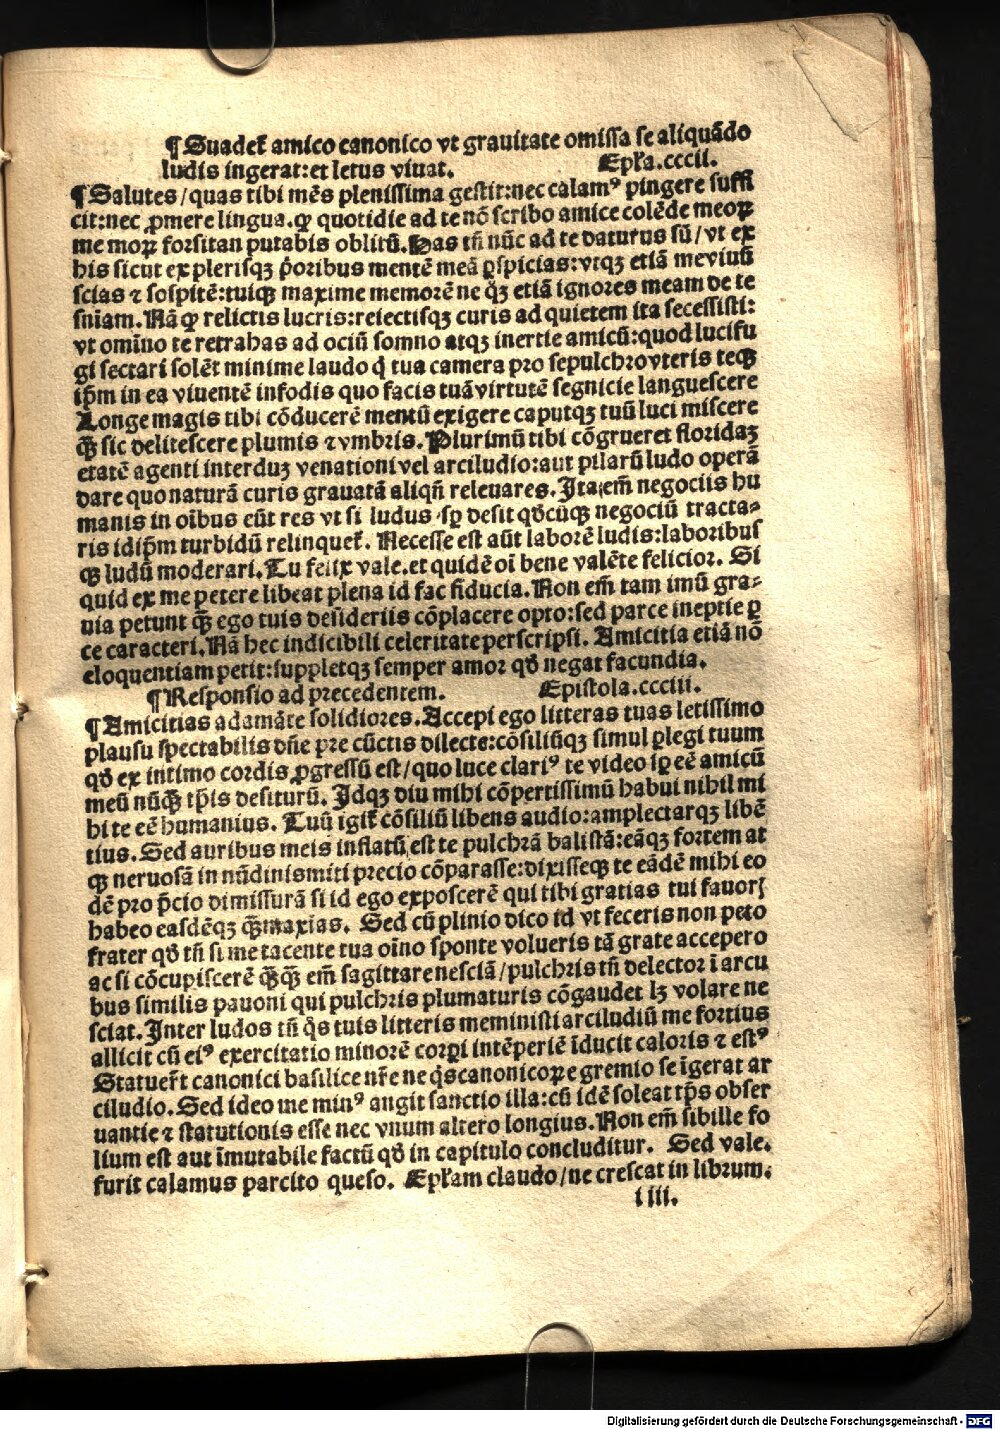 ¶Suadet᷑ amico canonico vt grauitate omissa se aliquādo
ludis ingerat:et letus viuat. Epl̓a.cccii.
¶Salutes/quas tibi mēs plenissima gestit:nec calamꝰ pingere suffi
cit:nec ꝓmere lingua.qꝫ quotidie ad te nō scribo amice colēde meoꝝ
me moꝝ forsitan putabis oblitū.Has tn̄ nūc ad te daturus sū/vt ex
his sicut ex plerisqꝫ p̄oribus mentē meā ꝑspicias:vtqꝫ etiā meviuū
scias ⁊ sospitē:tuiqꝫ maxime memorē ne qͣꝫ etiā ignores meam de te
sn̄iam.Nā qꝫ relictis lucris:reiectisqꝫ curis ad quietem ita secessisti:
vt omīno te retrahas ad ociū somno atqꝫ inertie amicū:quod lucifu
gi sectari solēt minime laudo q̇ tua camera pro sepulchrovteris teqꝫ
ip̄m in ea viuentē infodis quo facis tuāvirtutē segnicie languescere
Longe magis tibi cōducerē mentū exigere caputqꝫ tuū luci miscere
qͣꝫ sic delitescere plumis ⁊ vmbris.Plurimū tibi cōgrueret floridaꝫ
etatē agenti interduꝫ venationi vel arciludio:aut pilarū ludo operā
dare quo naturā curis grauatā aliqn̄ releuares.Ita em̄ negociis hu
manis in oībus eūt res vt si ludus sꝑ desit qd̓cūqꝫ negociū tracta-
ris idip̄m turbidū relinquet᷑. Necesse est aūt laborē ludis:laboribus
qꝫ ludū moderari.Tu felix vale.et quidē oī bene valēte felicior. Si
quid ex me petere libeat plena id fac fiducia.Non em̄ tam imū gra-
uia petunt qͣꝫ ego tuis desideriis cōplacere opto:sed parce ineptie ꝑ
ce caracteri.Nā hec indicibili celeritate perscripsi. Amicitia etiā nō
eloquentiam petit:suppletqꝫ semper amor qd̓ negat facundia.
¶Responsio ad precedentem. Epistola.ccciii.
¶Amicitias adamāte solidiores.Accepi ego litteras tuas letissimo
plausu spectabilis dn̄e pre cūctis dilecte:cōsiliūqꝫ simul ꝑlegi tuum
qd̓ ex intimo cordis ꝓgressū est/quo luce clariꝰ te video iꝑ eē amicū
meū nūqͣꝫ tp̄is desiturū. Idqꝫ diu mihi cōpertissimū habui nihil mi
hi te eē humanius. Tuū igit᷑ cōsiliū libens audio:amplectarqꝫ libē
tius.Sed auribus meis inflatū est te pulchrā balistā:eāqꝫ fortem at
qꝫ neruosā in nūdinis miti precio cōparasse:dixisseqꝫ te eādē mihi eo
dē pro p̄cio dimissurā si id ego exposcerē qui tibi gratias tui fauori
habeo easdēqꝫ qͣꝫmaxīas. Sed cū plinio dico id vt feceris non peto
frater qd̓ tn̄ si me tacente tua oīno sponte volueris tā grate accepero
ac si cōcupiscerē qͣꝫqͣꝫ em̄ sagittare nesciā/pulchris tn̄ delector ī arcu
bus similis pauoni qui pulchris plumaturis cōgaudet lꝫ volare ne
sciat.Inter ludos tn̄ q̇s tuis litteris meministi arciludiū me fortius
allicit cū eiꝰ exercitatio minorē corꝑi intēperiē īducit caloris ⁊ estꝰ
Statuer̄t canonici basilice nr̄e ne q̇s canonicoꝝ e gremio se īgerat ar
ciludio.Sed ideo me minꝰ angit sanctio illa:cū idē soleat tp̄s obser
uantie ⁊ statutionis esse nec vnum altero longius.Non em̄ sibille fo
lium est aut īmutabile factū qd̓ in capitulo concluditur. Sed vale.
furit calamus parcito queso. Epl̓am claudo/ne crescat in librum.
i iii.
Digitalisierung gefördert durch die Deutsche Forschungsgemeinschaft - DFG